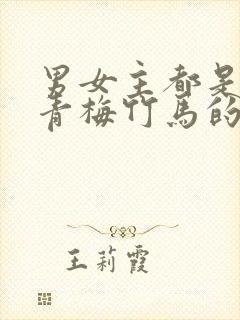 男女主都是
青梅竹马的
王莉霞